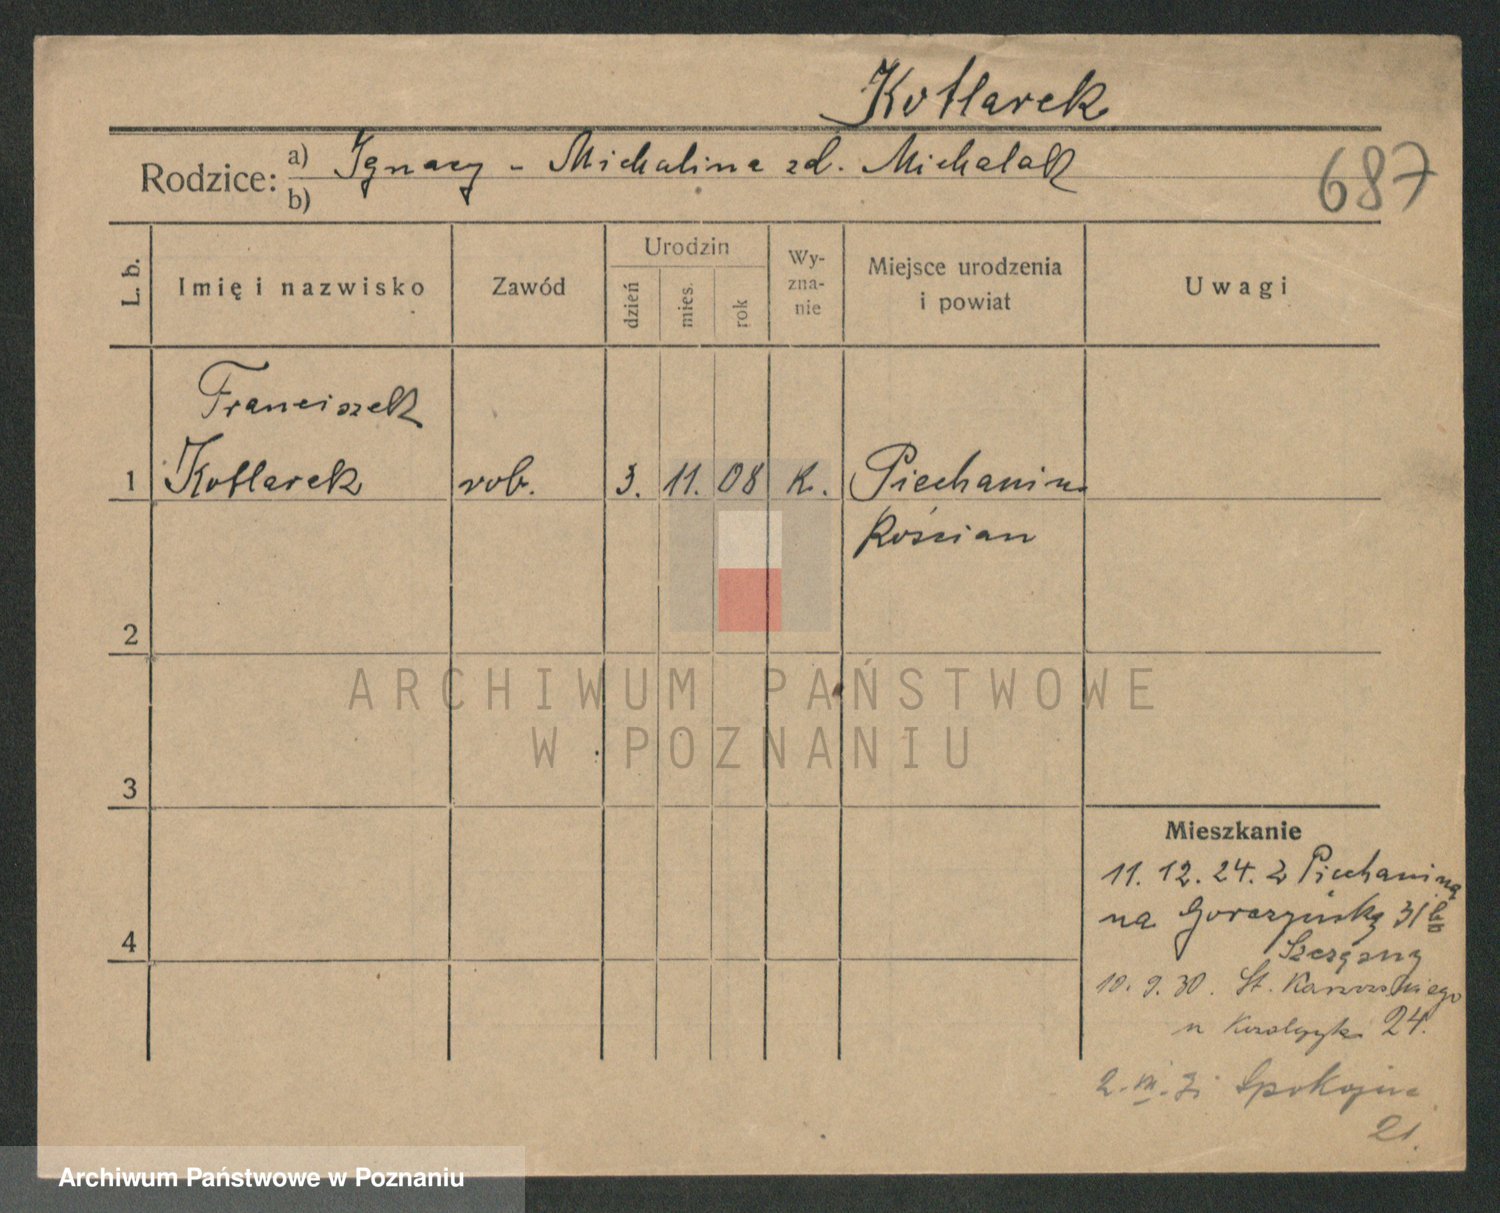 Kotlarek
Rodzice: a) Ignacy - Michalina zd. Michalak
b)
687
L. b.
Imię i nazwisko
Zawód
Urodzin
dzień
mies.
rok
Wy-
zna-
nie
Miejsce urodzenia
i powiat
Uwagi
Franciszek
1 Kotlarek rob. 3. 11. 08 k. Piechanin
Kościan
2
ARCHIWUM PAŃSTWOWE
W POZNANIU
3
Mieszkanie
11. 12. 24. z Piechanina
na Gorczyńską 31
4
10. 9. 30. St.
u 24.
Spokojna
21.
Archiwum Państwowe w Poznaniu